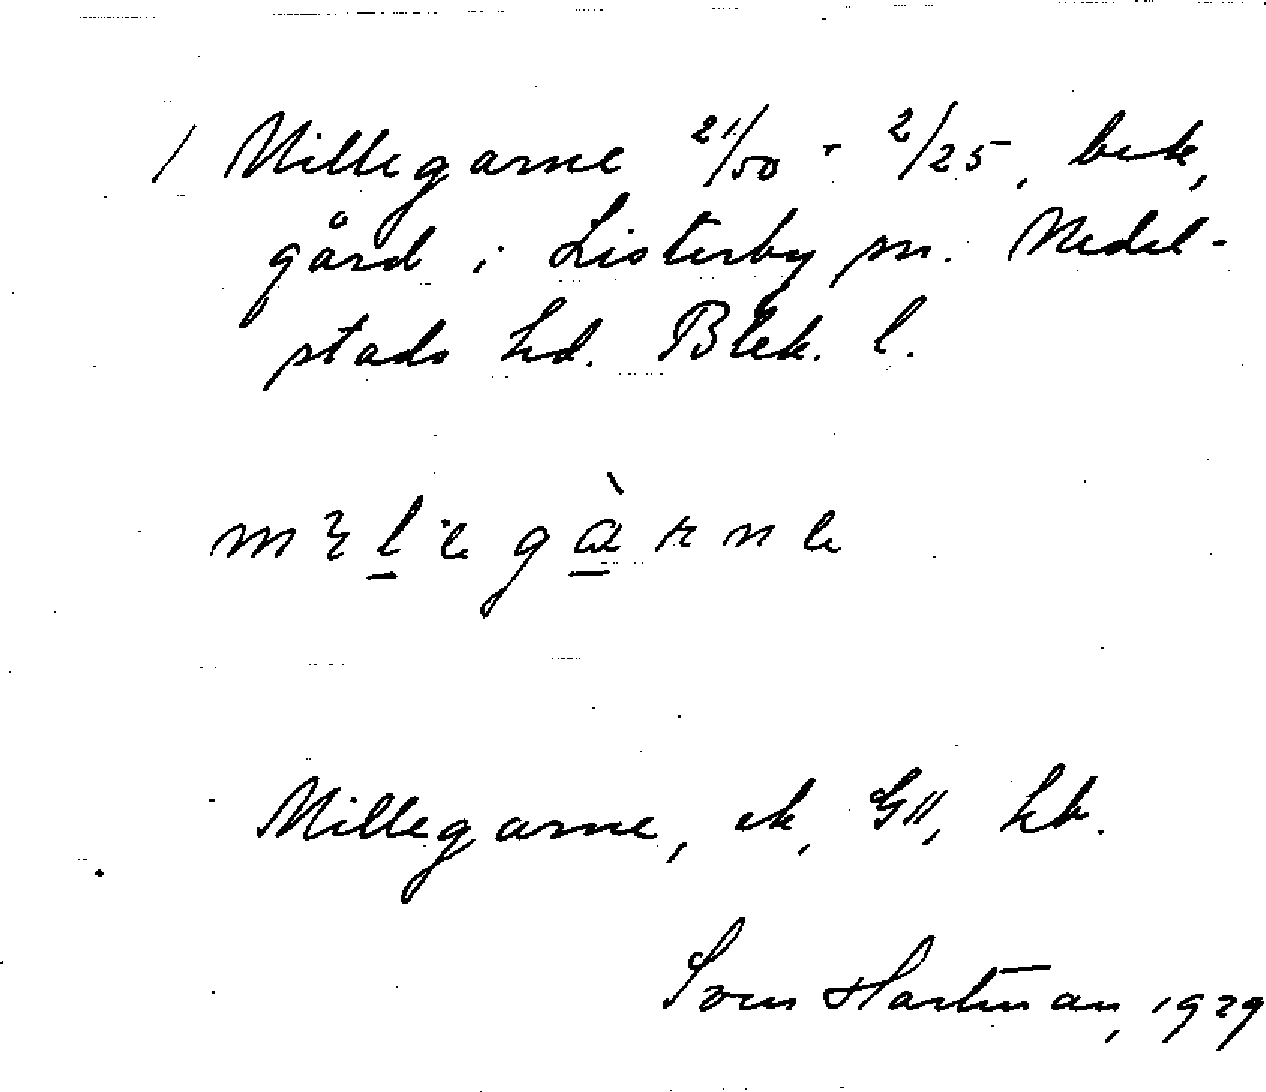 / Millegarne 21/50 - 2/25, bek,
gård i Listerby sn. Medel-
stads hd. Blek. l.
Millegarne, ek, GII, hb.
Sven Hartman, 1929